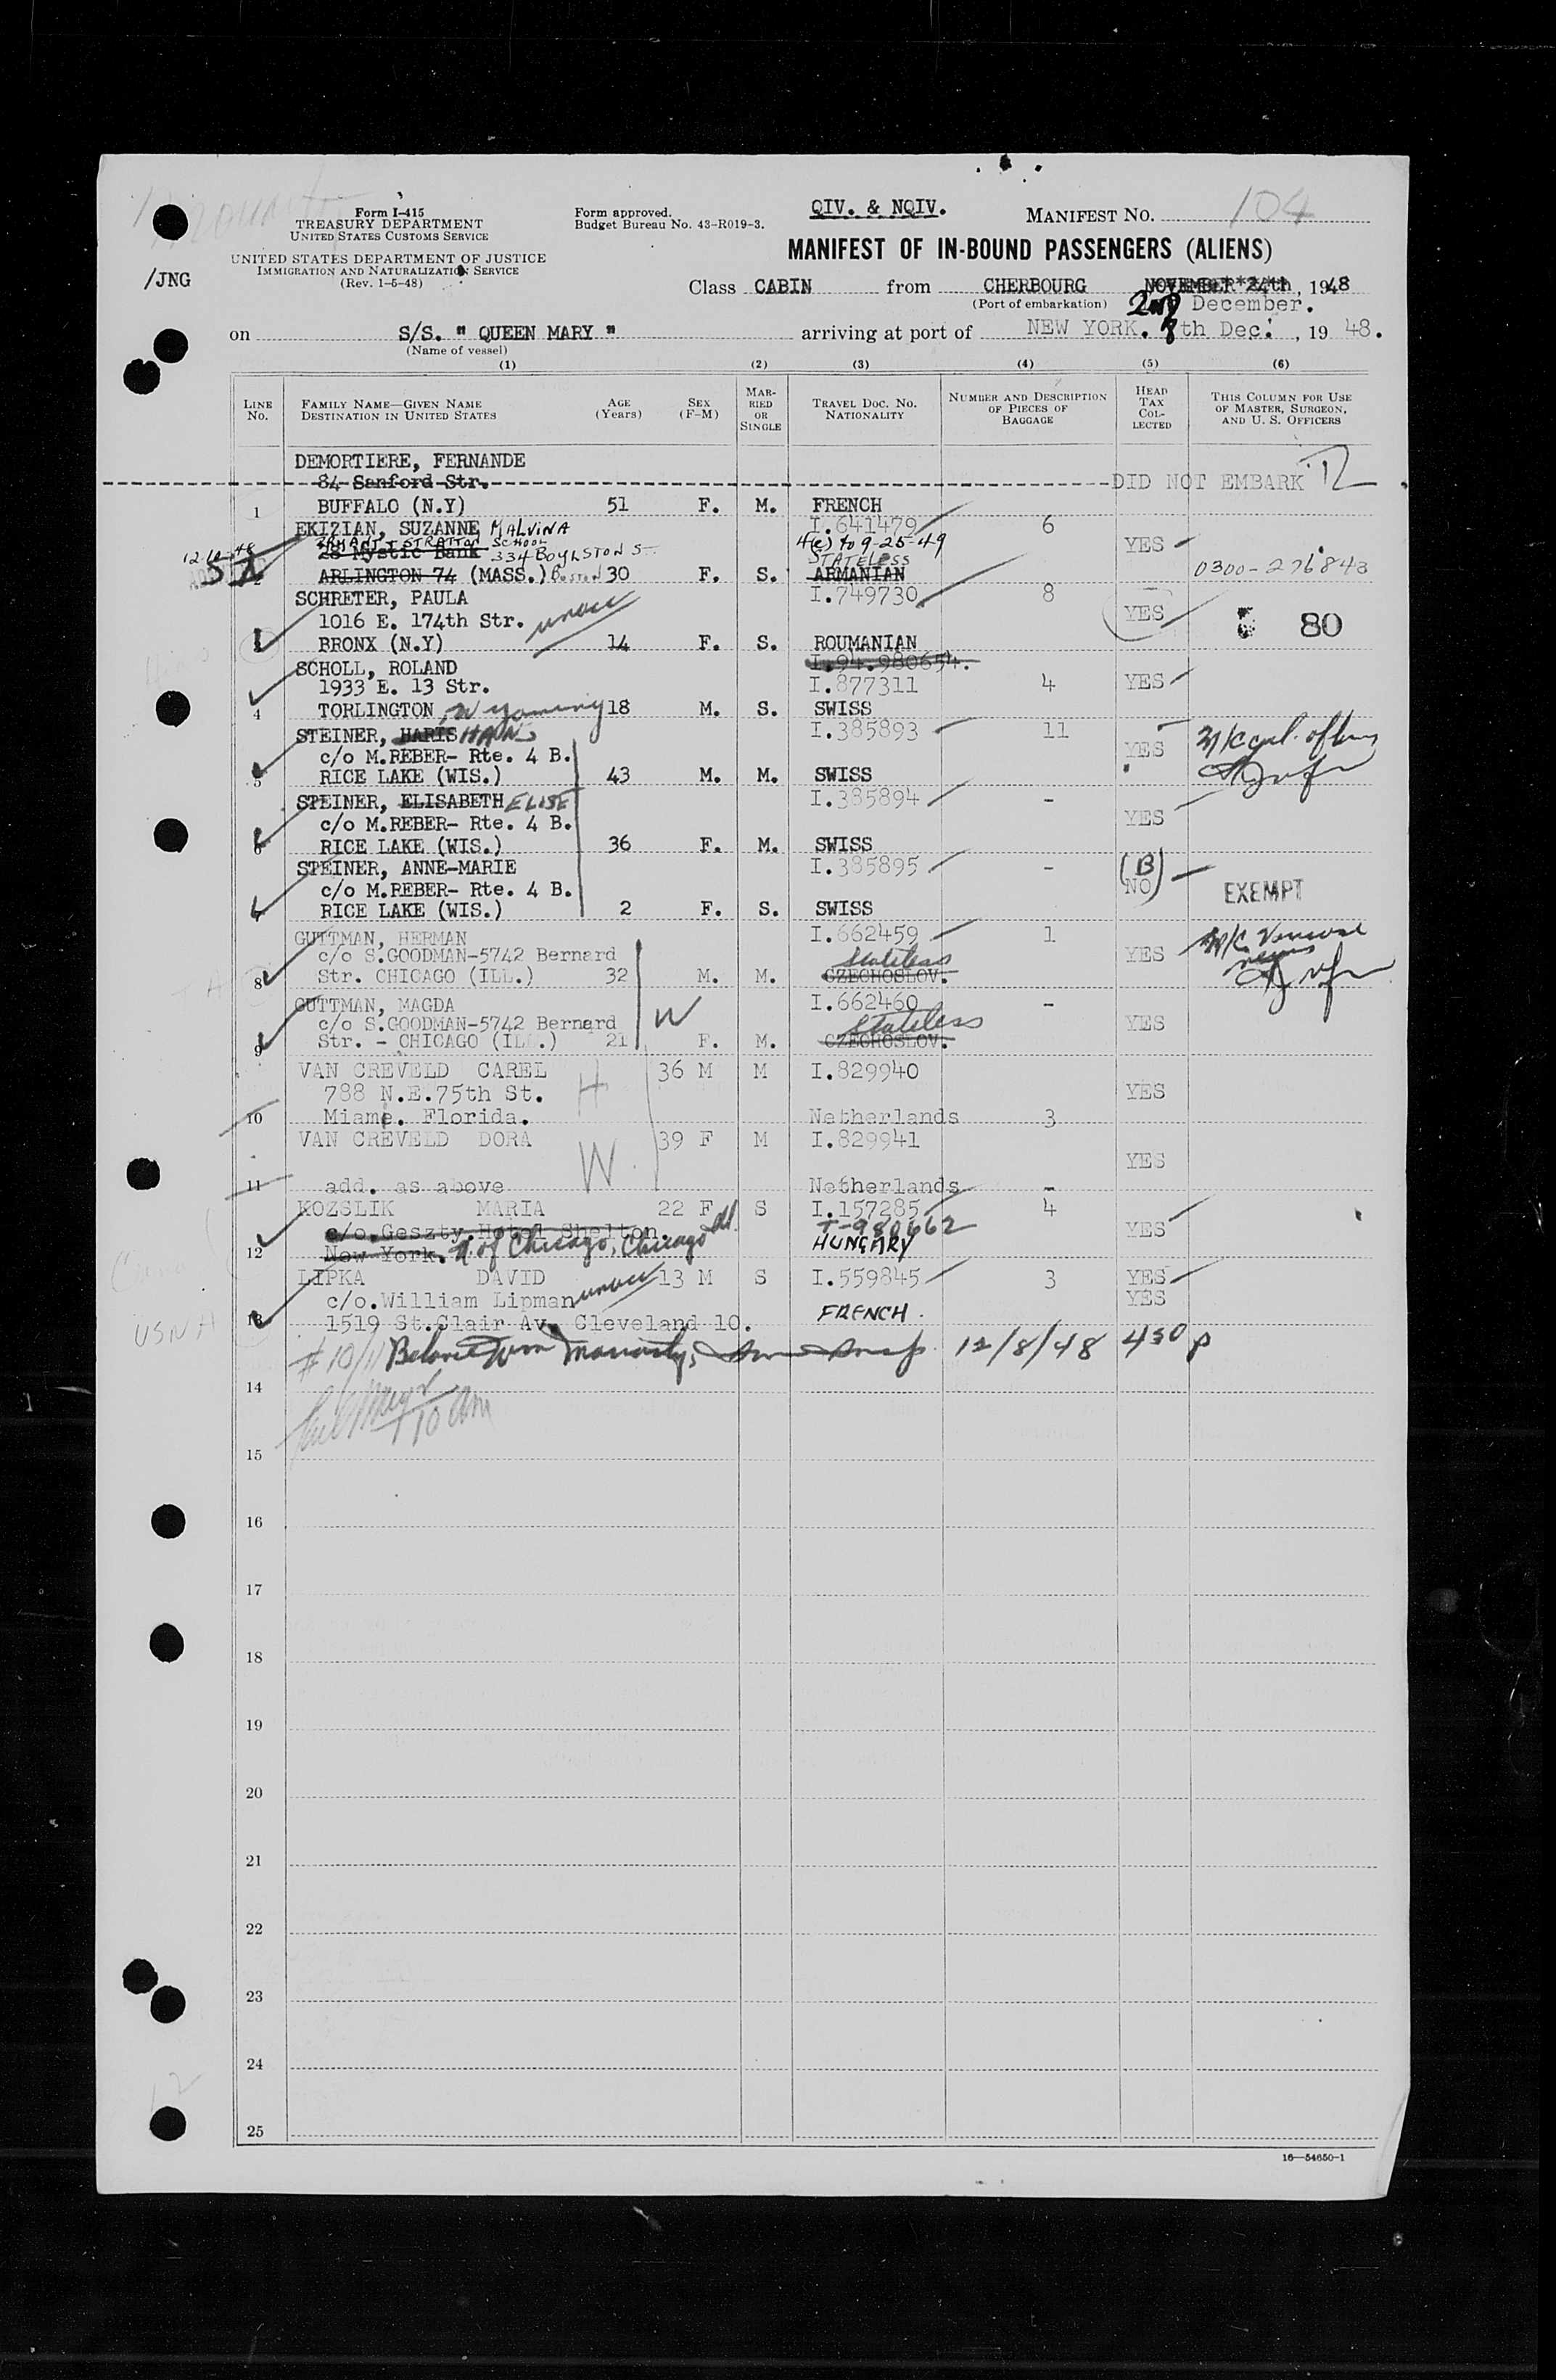 104
Form I-415
TREASURY DEPARTMENT
UNITED STATES CUSTOMS SERVICE
UNITED STATES DEPARTMENT OF JUSTICE
IMMIGRATION AND NATURALIZATION SERVICE
(Rev. 1-5-48)
/JNG
Form approved.
Budget Bureau No. 43-R019-3.
QIV. & NQIV.
MANIFEST NO.
MANIFEST OF IN-BOUND PASSENGERS (ALIENS)
Class CABIN from CHERBOURG NOVEMBER 24th, 1948
(Port of embarkation) 2nd December.
on S/S. " QUEEN MARY " arriving at port of NEW YORK. 7th Dec. , 19 48.
(Name of vessel)
(1) (2) (3) (4) (5) (6)
LINE NO. FAMILY NAME—GIVEN NAME DESTINATION IN UNITED STATES AGE (Years) SEX (F-M) MARRIED OR SINGLE TRAVEL DOC. NO. NATIONALITY NUMBER AND DESCRIPTION OF PIECES OF BAGGAGE HEAD TAX COLLECTED THIS COLUMN FOR USE OF MASTER, SURGEON, AND U. S. OFFICERS
DEMORTIERE, FERNANDE
84 Sanford Str. DID NOT EMBARK
1 BUFFALO (N.Y) 51 F. M. FRENCH
EKIZIAN, SUZANNE MALVINA I.641479 6
BRYANT & STRATTON SCHOOL 4(e) to 9-25-49 YES
28 Mystic Bank 334 BOYLSTON ST. STATELESS
12-10-48 ARLINGTON 74 (MASS.) BOSTON 30 F. S. ARMANIAN 0300-276843
SCHRETER, PAULA I.749730 8
1016 E. 174th Str. YES 80
BRONX (N.Y) 14 F. S. ROUMANIAN
SCHOLL, ROLAND I.94.980654.
1933 E. 13 Str. I.877311 4 YES
4 TORLINGTON, Wyoming 18 M. S. SWISS
STEINER, HARIS HANS I.385893 11
c/o M.REBER- Rte. 4 B. YES
5 RICE LAKE (WIS.) 43 M. M. SWISS
STEINER, ELISABETH ELISE I.385894 -
c/o M.REBER- Rte. 4 B. YES
6 RICE LAKE (WIS.) 36 F. M. SWISS
STEINER, ANNE-MARIE I.385895 - (B)
c/o M.REBER- Rte. 4 B. NO EXEMPT
RICE LAKE (WIS.) 2 F. S. SWISS
GUTTMAN, HERMAN I.662459 1
c/o S.GOODMAN-5742 Bernard Stateless YES
8 Str. CHICAGO (ILL.) 32 M. M. CZECHOSLOV.
GUTTMAN, MAGDA I.662460 -
c/o S.GOODMAN-5742 Bernard W Stateless YES
9 Str. - CHICAGO (ILL.) 21 F. M. CZECHOSLOV.
VAN CREVELD CAREL 36 M M I.829940
788 N.E.75th St. H YES
10 Miame. Florida. Netherlands 3
VAN CREVELD DORA 39 F M I.829941
W. YES
11 add. as above Netherlands -
KOZSLIK MARIA 22 F S I.157285 4
c/o.Geszty.Hotel Shelton. T-980662 YES
12 New York. U. of Chicago, Chicago Ill. HUNGARY
LIPKA DAVID 13 M S I.559845 3 YES
c/o.William Lipman YES
13 1519 St.Clair Av. Cleveland 10. FRENCH.
USNA
#10/11 12/8/48 4 30 p
14
10 am
15
16
17
18
19
20
21
22
23
24
25
16—54650-1